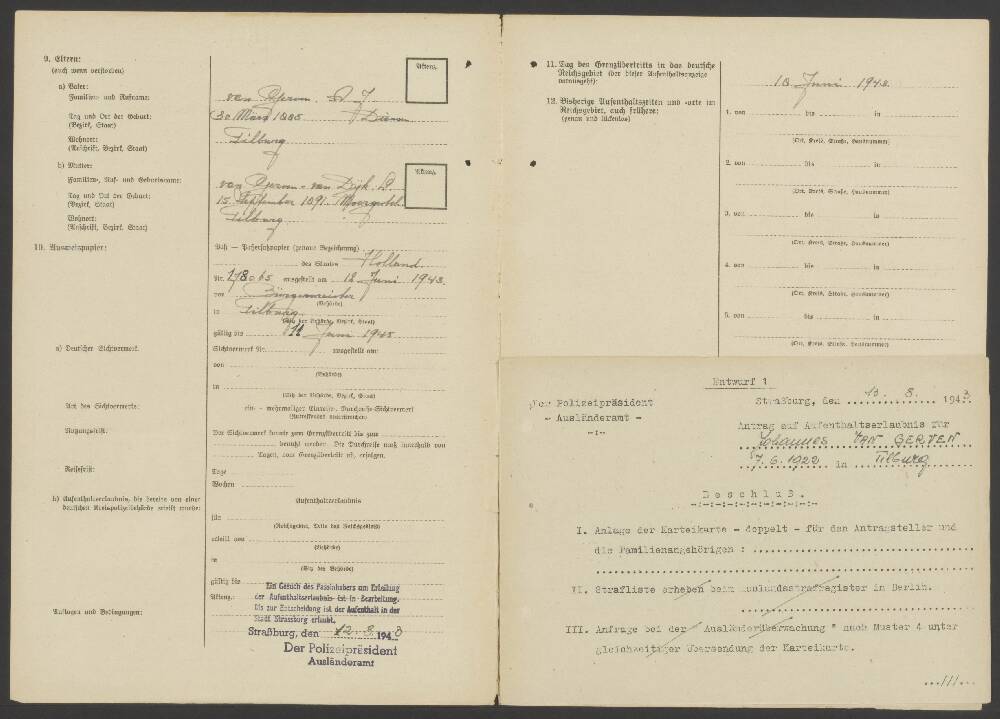 9. Eltern:
(auch wenn verstorben)
a) Vater:
Familien- und Rufname:
Aktenz.
van Gerven. A. J.
Tag und Ort der Geburt:
(Bezirk, Staat)
30 März 1885 / Diessen
Wohnort:
(Anschrift, Bezirk, Staat)
Tilburg
b) Mutter:
Familien-, Ruf- und Geburtsname:
Aktenz.
van Gerven - van Dijk.
Tag und Ort der Geburt:
(Bezirk, Staat)
15 September 1891.
Wohnort:
(Anschrift, Bezirk, Staat)
Tilburg
10. Ausweispapier:
Paß — Paßersatzpapier (genaue Bezeichnung)
des Staates Holland
Nr. 178065 ausgestellt am 12 Juni 1943.
von Bürgermeister
(Behörde)
in Tilburg
(Sitz der Behörde, Bezirk, Staat)
gültig bis 11 Juni 1945
a) Deutscher Sichtvermerk
Sichtvermerk Nr. / ausgestellt am:
von
(Behörde)
in
(Sitz der Behörde, Bezirk, Staat)
Art des Sichtvermerks:
ein- - mehrmaliger Einreise-, Durchreise-Sichtvermerk
(Nutzungsfrist:)
Nutzungsfrist:
Der Sichtvermerk konnte zum Grenzübertritt bis zum
benutzt werden. Die Durchreise muß innerhalb von
Tagen, vom Grenzübertritt ab, erfolgen.
Reisefrist:
Tage
Wochen
b) Aufenthaltserlaubnis, die bereits von einer
deutschen Kreispolizeibehörde erteilt wurde:
Aufenthaltserlaubnis
für
(Reichsgebiet, Teile des Reichsgebiets)
erteilt von
(Behörde)
in
(Sitz der Behörde)
gültig bis
Aktenz.
Auflagen und Bedingungen:
Ein Gesuch des Passinhabers um Erteilung
der Aufenthaltserlaubnis ist in Bearbeitung.
Bis zur Entscheidung ist der Aufenthalt in der
Stadt Strassburg erlaubt.
Straßburg, den 12. 8. 1943
Der Polizeipräsident
Ausländeramt
11. Tag des Grenzübertritts in das deutsche
Reichsgebiet (der dieser Aufenthaltsanzeige
vorausgeht):
18 Juni 1943.
12. Bisherige Aufenthaltszeiten und -orte im
Reichsgebiet, auch frühere:
(genau und lückenlos)
1. von bis in
(Ort, Kreis, Straße, Hausnummer)
2. von bis in
(Ort, Kreis, Straße, Hausnummer)
3. von bis in
(Ort, Kreis, Straße, Hausnummer)
4. von bis in
(Ort, Kreis, Straße, Hausnummer)
5. von bis in
(Ort, Kreis, Straße, Hausnummer)
Entwurf 1
Der Polizeipräsident
- Ausländeramt -
-:-
Straßburg, den 8. 1943
Antrag auf Aufenthaltserlaubnis für
Johannes VAN GERVEN
7.6.1922 in Tilburg
Beschluß.
-:-:-:-:-:-:-:-:-:-:-
I. Anlage der Karteikarte - doppelt - für den Antragsteller und
die Familienangehörigen :
II. Strafliste erheben beim Auslandsstrafregister in Berlin.
III. Anfrage bei der " Ausländerüberwachung " nach Muster 4 unter
gleichzeitiger Übersendung der Karteikarte.
...///...